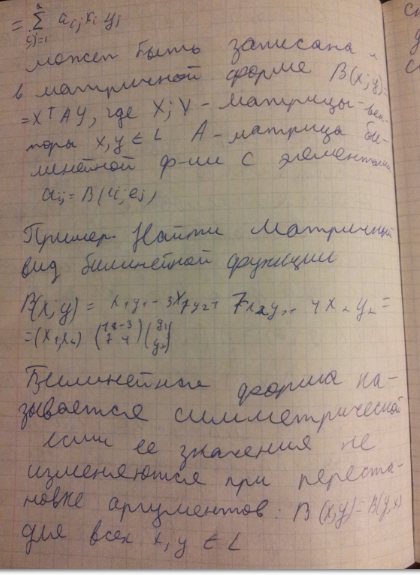 = Σ aᵢⱼ xᵢ yⱼ
может быть записана и
в матричной форме B(x;y)=
=XᵀAY, где X; Y - матрицы-век-
торы x,y ∈ L A - матрица би-
линейной ф-ии с элементами
aᵢⱼ = B(eᵢ, eⱼ)
Пример. Найти матричный
вид билинейной функции
B(x,y) = x₁y₁ - 3x₁y₂ + 7x₂y₁ 4x₂y₂ =
= (x₁,x₂)
Билинейная форма на-
зывается симметрической
если ее значения не
изменяются при переста-
новке аргументов: B(x,y)=B(y,x)
для всех x, y ∈ L